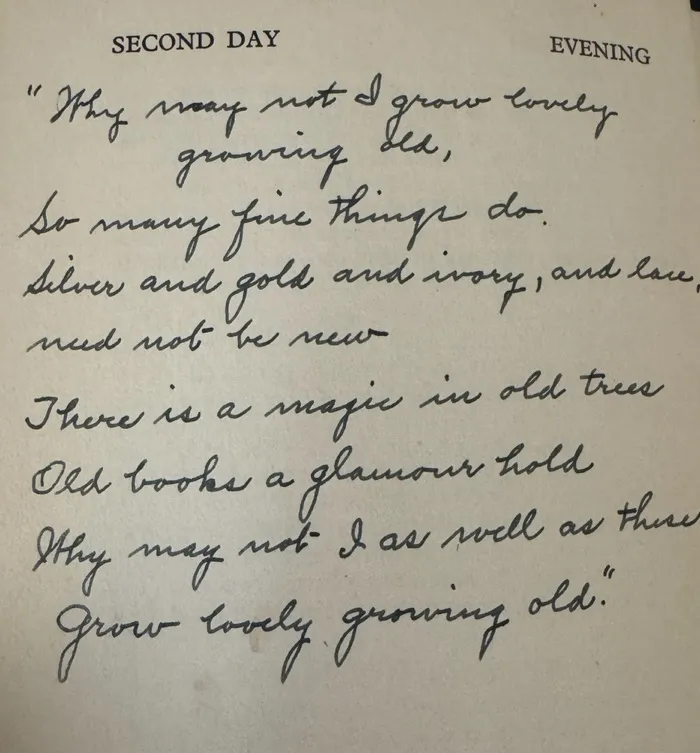 SECOND DAY EVENING
"Why may not I grow lovely
growing old,
So many fine things do.
Silver and gold and ivory, and lace,
need not be new
There is a magic in old trees
Old books a glamour hold
Why may not I as well as these
Grow lovely growing old."